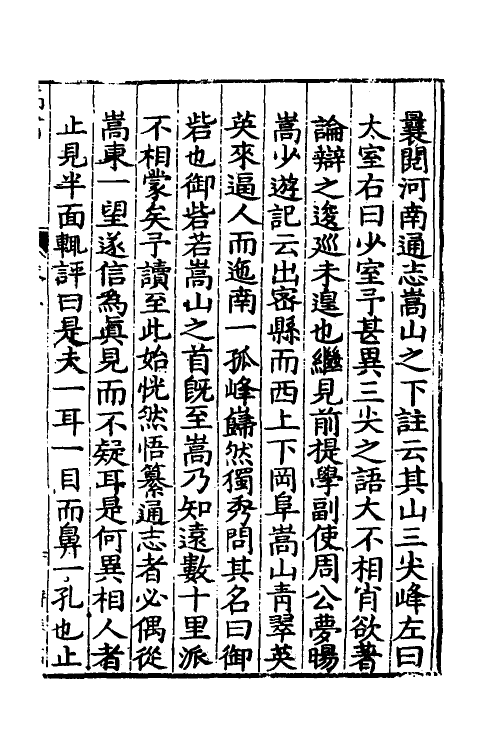 曩閲河南通志嵩山之下註云其山三尖峰左曰
太室右曰少室予甚異三尖之語大不相肖欲著
論辯之逡廵未遑也繼見前提學副使周公夢暘
嵩少遊記云出密縣而西上下岡阜嵩山青翠英
英來逼人而迤南一孤峰巋然獨秀問其名曰御
砦也御砦若嵩山之首旣至嵩乃知遠數十里派
不相蒙矣予讀至此始恍然悟纂通志者必偶從
嵩東一望遂信為眞見而不疑耳是何異相人者
止見半面輒評曰是夫一耳一目而鼻一孔也止